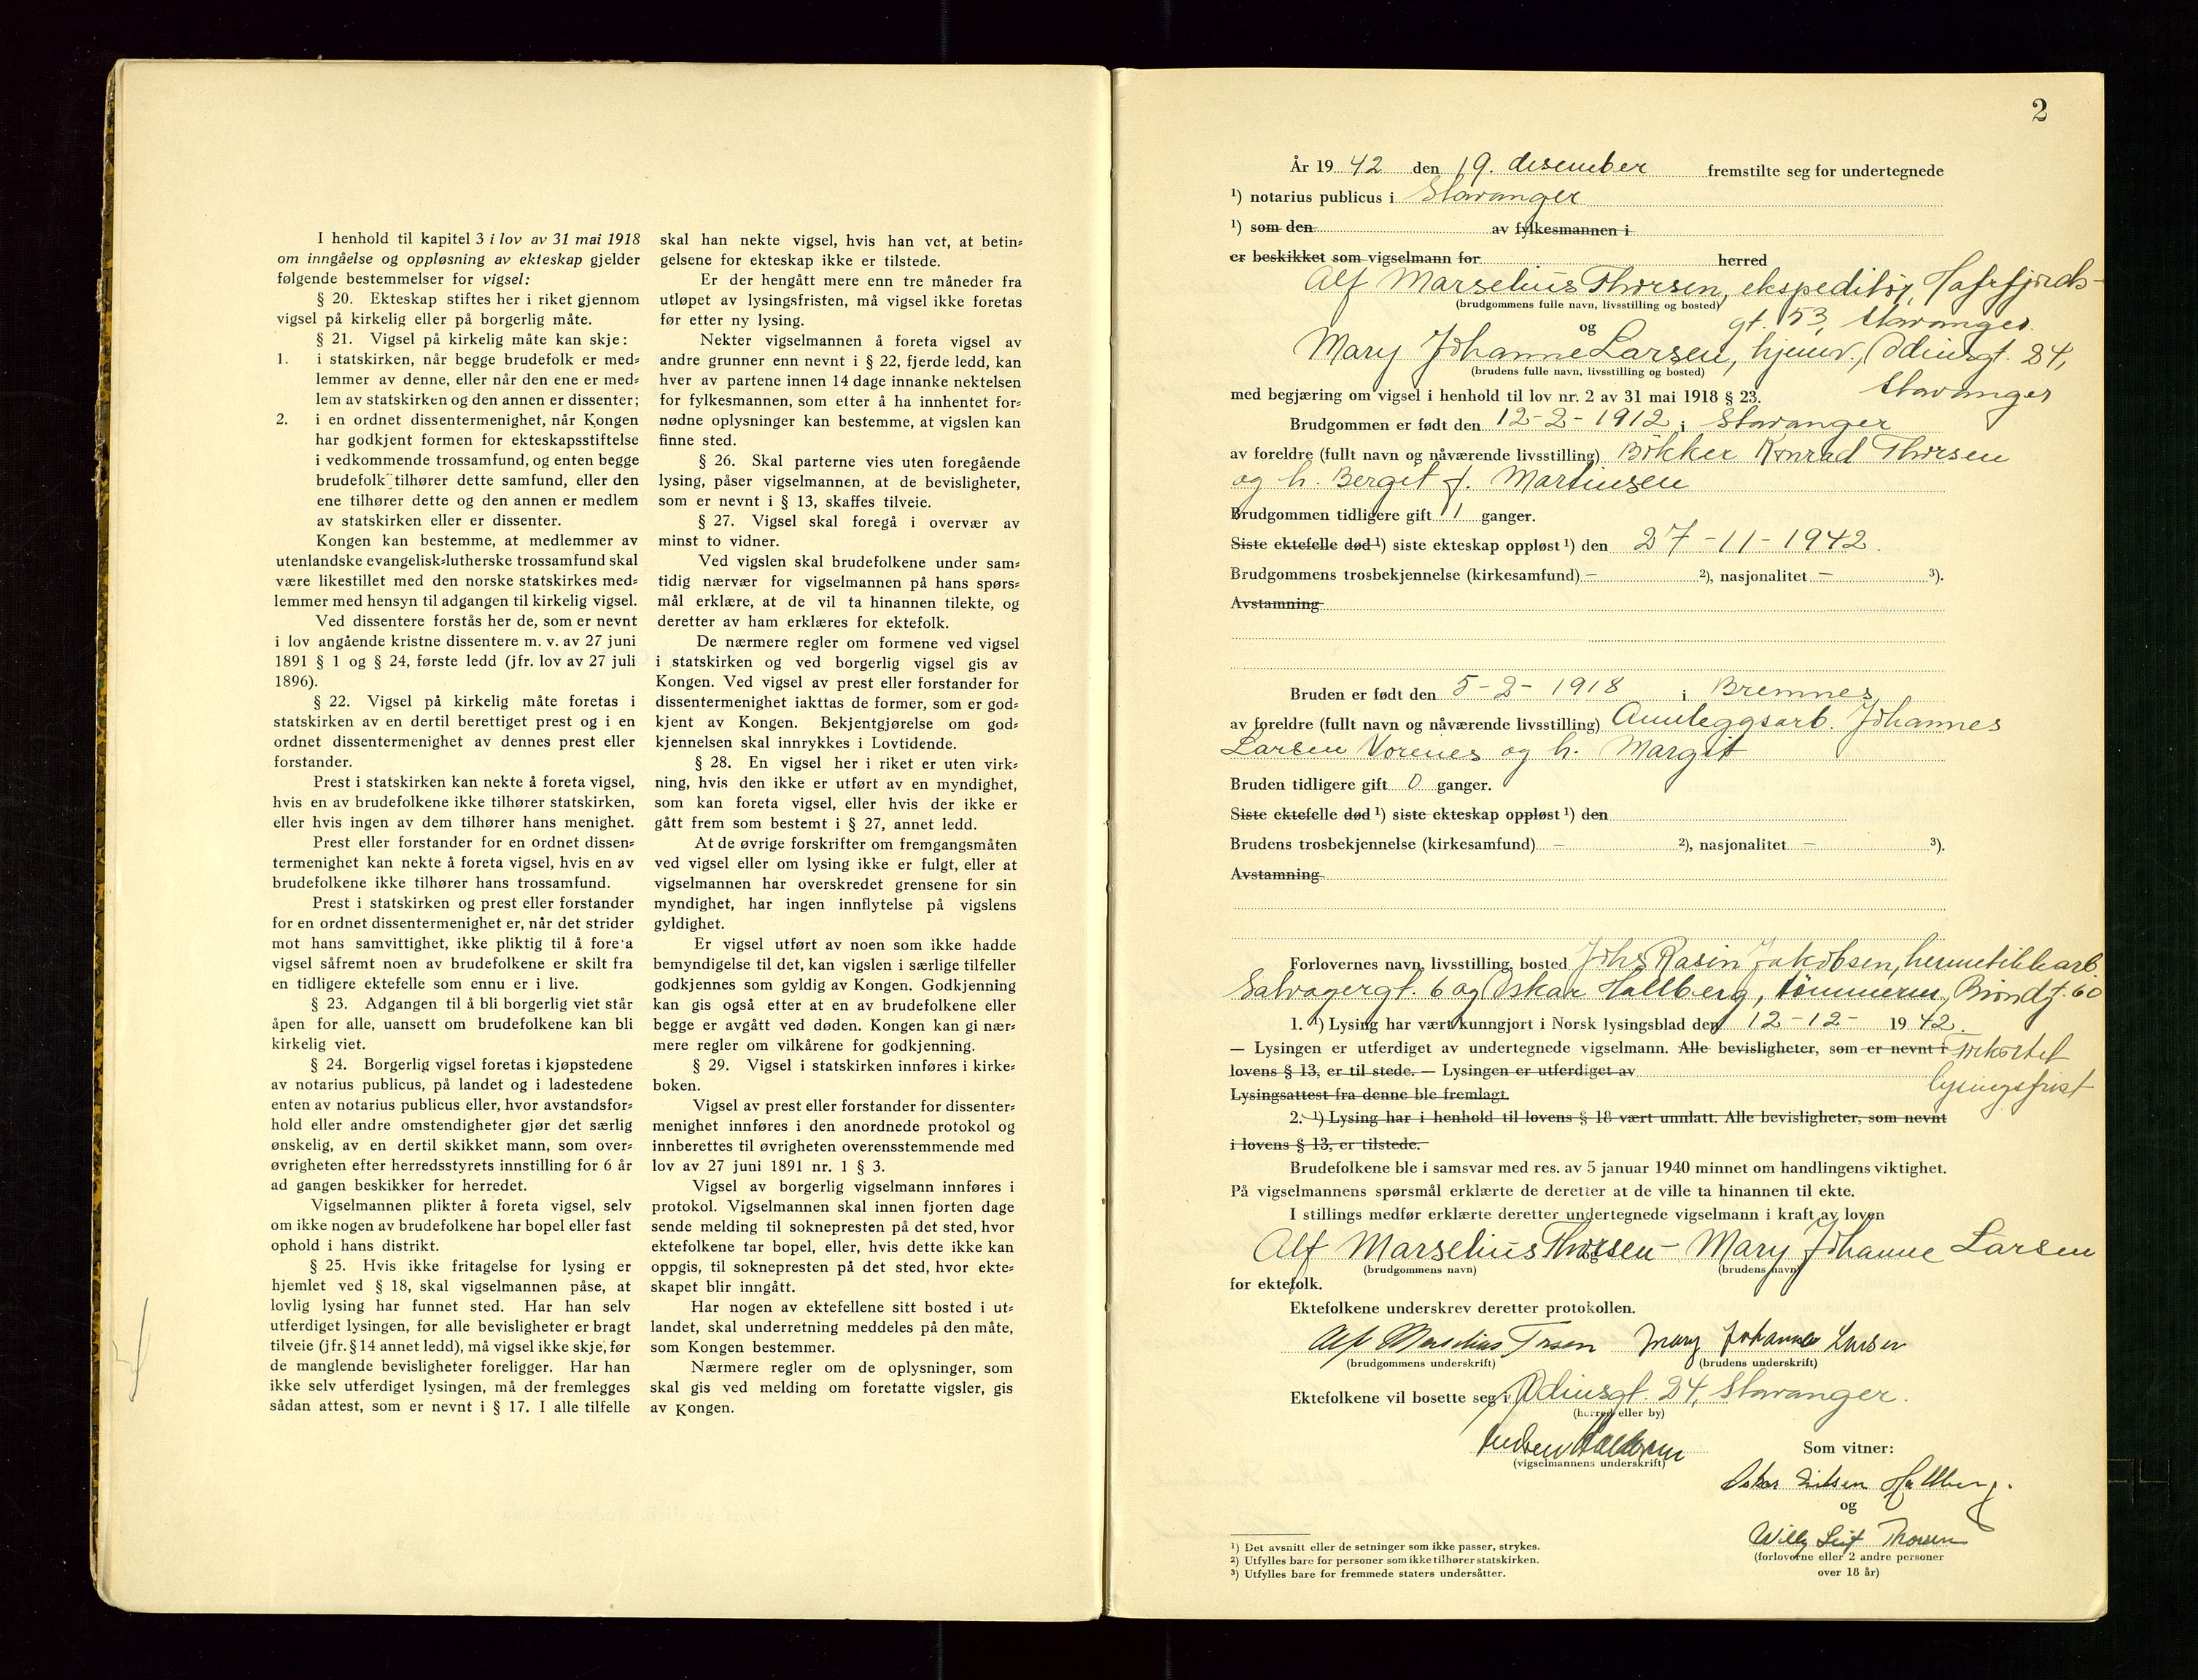 I henhold til kapitel 3 i lov av 31 mai 1918
om inngåelse og oppløsning av ekteskap gjelder
følgende bestemmelser for vigsel:
§ 20. Ekteskap stiftes her i riket gjennom
vigsel på kirkelig eller på borgerlig måte.
§ 21. Vigsel på kirkelig måte kan skje:
1. i statskirken, når begge brudefolk er med-
lemmer av denne, eller når den ene er med-
lem av statskirken og den annen er dissenter;
2. i en ordnet dissentermenighet, når Kongen
har godkjent formen for ekteskapsstiftelse
i vedkommende trossamfund, og enten begge
brudefolk tilhører dette samfund, eller den
ene tilhører dette og den annen er medlem
av statskirken eller er dissenter.
Kongen kan bestemme, at medlemmer av
utenlandske evangelisk-lutherske trossamfund skal
være likestillet med den norske statskirkes med-
lemmer med hensyn til adgangen til kirkelig vigsel.
Ved dissentere forstås her de, som er nevnt
i lov angående kristne dissentere m. v. av 27 juni
1891 § 1 og § 24, første ledd (jfr. lov av 27 juli
1896).
§ 22. Vigsel på kirkelig måte foretas i
statskirken av en dertil berettiget prest og i en
ordnet dissentermenighet av dennes prest eller
forstander.
Prest i statskirken kan nekte å foreta vigsel,
hvis en av brudefolkene ikke tilhører statskirken,
eller hvis ingen av dem tilhører hans menighet.
Prest eller forstander for en ordnet dissen-
termenighet kan nekte å foreta vigsel, hvis en av
brudefolkene ikke tilhører hans trossamfund.
Prest i statskirken og prest eller forstander
for en ordnet dissentermenighet er, når det strider
mot hans samvittighet, ikke pliktig til å foreta
vigsel såfremt noen av brudefolkene er skilt fra
en tidligere ektefelle som ennu er i live.
§ 23. Adgangen til å bli borgerlig viet står
åpen for alle, uansett om brudefolkene kan bli
kirkelig viet.
§ 24. Borgerlig vigsel foretas i kjøpstedene
av notarius publicus, på landet og i ladestedene
enten av notarius publicus eller, hvor avstandsfor-
hold eller andre omstendigheter gjør det særlig
ønskelig, av en dertil skikket mann, som over-
øvrigheten efter herredsstyrets innstilling for 6 år
ad gangen beskikker for herredet.
Vigselmannen plikter å foreta vigsel, selv
om ikke nogen av brudefolkene har bopel eller fast
ophold i hans distrikt.
§ 25. Hvis ikke fritagelse for lysing er
hjemlet ved § 18, skal vigselmannen påse, at
lovlig lysing har funnet sted. Har han selv
utferdiget lysingen, før alle bevisligheter er bragt
tilveie (jfr. § 14 annet ledd), må vigsel ikke skje, før
de manglende bevisligheter foreligger. Har han
ikke selv utferdiget lysingen, må der fremlegges
sådan attest, som er nevnt i § 17. I alle tilfelle
skal han nekte vigsel, hvis han vet, at betin-
gelsene for ekteskap ikke er tilstede.
Er der hengått mere enn tre måneder fra
utløpet av lysingsfristen, må vigsel ikke foretas
før etter ny lysing.
Nekter vigselmannen å foreta vigsel av
andre grunner enn nevnt i § 22, fjerde ledd, kan
hver av partene innen 14 dage innanke nektelsen
for fylkesmannen, som etter å ha innhentet for-
nødne oplysninger kan bestemme, at vigslen kan
finne sted.
§ 26. Skal parterne vies uten foregående
lysing, påser vigselmannen, at de bevisligheter,
som er nevnt i § 13, skaffes tilveie.
§ 27. Vigsel skal foregå i overvær av
minst to vidner.
Ved vigslen skal brudefolkene under sam-
tidig nærvær for vigselmannen på hans spørs-
mål erklære, at de vil ta hinannen tilekte, og
deretter av ham erklæres for ektefolk.
De nærmere regler om formene ved vigsel
i statskirken og ved borgerlig vigsel gis av
Kongen. Ved vigsel av prest eller forstander for
dissentermenighet iakttas de former, som er god-
kjent av Kongen. Bekjentgjørelse om god-
kjennelsen skal innrykkes i Lovtidende.
§ 28. En vigsel her i riket er uten virk-
ning, hvis den ikke er utført av en myndighet,
som kan foreta vigsel, eller hvis der ikke er
gått frem som bestemt i § 27, annet ledd.
At de øvrige forskrifter om fremgangsmåten
ved vigsel eller om lysing ikke er fulgt, eller at
vigselmannen har overskredet grensene for sin
myndighet, har ingen innflytelse på vigslens
gyldighet.
Er vigsel utført av noen som ikke hadde
bemyndigelse til det, kan vigslen i særlige tilfeller
godkjennes som gyldig av Kongen. Godkjenning
kan gis også etter at en av brudefolkene eller
begge er avgått ved døden. Kongen kan gi nær-
mere regler om vilkårene for godkjenning.
§ 29. Vigsel i statskirken innføres i kirke-
boken.
Vigsel av prest eller forstander for dissenter-
menighet innføres i den anordnede protokol og
innberettes til øvrigheten overensstemmende med
lov av 27 juni 1891 nr. 1 § 3.
Vigsel av borgerlig vigselmann innføres i
protokol. Vigselmannen skal innen fjorten dage
sende melding til soknepresten på det sted, hvor
ektefolkene tar bopel, eller, hvis dette ikke kan
oppgis, til soknepresten på det sted, hvor ekte-
skapet blir inngått.
Har nogen av ektefellene sitt bosted i ut-
landet, skal underretning meddeles på den måte,
som Kongen bestemmer.
Nærmere regler om de oplysninger, som
skal gis ved melding om foretatte vigsler, gis
av Kongen.
2
År 1942 den 19. desember fremstilte seg for undertegnede
1) notarius publicus i Stavanger
1) som den av fylkesmannen i
er beskikket som vigselmann for herred
Alf Marselius Thorsen, ekspeditør, Hafrsfjords-
(brudgommens fulle navn, livsstilling og bosted)
og gt. 53, Stavanger.
Mary Johanne Larsen, hjemv., Odinsgt. 24,
(brudens fulle navn, livsstilling og bosted)
Stavanger
med begjæring om vigsel i henhold til lov nr. 2 av 31 mai 1918 § 23.
Brudgommen er født den 12-2-1912 i Stavanger
av foreldre (fullt navn og nåværende livsstilling) Bøkker Konrad Thorsen
og h. Bergit f. Martinsen
Brudgommen tidligere gift 1 ganger.
Siste ektefelle død 1) siste ekteskap oppløst 1) den 27-11-1942.
Brudgommens trosbekjennelse (kirkesamfund) — 2), nasjonalitet — 3).
Avstamning
Bruden er født den 5-2-1918 i Bremnes
av foreldre (fullt navn og nåværende livsstilling) Annleggsarb. Johannes
Larsen Vorenes og h. Margit
Bruden tidligere gift 0 ganger.
Siste ektefelle død 1) siste ekteskap oppløst 1) den
Brudens trosbekjennelse (kirkesamfund) — 2), nasjonalitet — 3).
Avstamning
Forlovernes navn, livsstilling, bosted Johs Rasin Jakobsen, hermetikkarb.
Salvagergt. 6 og Oskar Hallberg, tømmerm., 60
1. 1) Lysing har vært kunngjort i Norsk lysingsblad den 12-12- 1942.
— Lysingen er utferdiget av undertegnede vigselmann. Alle bevisligheter, som er nevnt i Forkortet
lovens § 13, er til stede. — Lysingen er utferdiget av
lysingsfrist
Lysingsattest fra denne ble fremlagt.
2. 1) Lysing har i henhold til lovens § 18 vært unnlatt. Alle bevisligheter, som nevnt
i lovens § 13, er tilstede. —
Brudefolkene ble i samsvar med res. av 5 januar 1940 minnet om handlingens viktighet.
På vigselmannens spørsmål erklærte de deretter at de ville ta hinannen til ekte.
I stillings medfør erklærte deretter undertegnede vigselmann i kraft av loven
Alf Marselius Thorsen - Mary Johanne Larsen
(brudgommens navn) (brudens navn)
for ektefolk.
Ektefolkene underskrev deretter protokollen.
Alf Marselius Mary Johanne Larsen
(brudgommens underskrift) (brudens underskrift)
Ektefolkene vil bosette seg i Odinsgt. 24, Stavanger.
(herred eller by)
(vigselmannens underskrift)
Som vitner:
Hallberg.
og
Willy Leif Thorsen
(forloverne eller 2 andre personer
over 18 år)
1) Det avsnitt eller de setninger som ikke passer, strykes.
2) Utfylles bare for personer som ikke tilhører statskirken.
3) Utfylles bare for fremmede staters undersåtter.